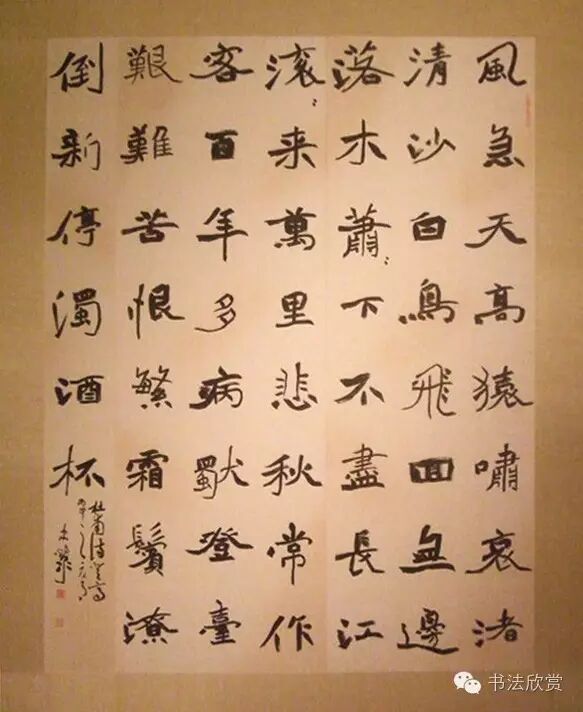 風急天高猿嘯哀渚
清沙白鳥飛回無邊
落木蕭〻下不盡長江
滚〻来萬里悲秋常作
客百年多病獨登臺
艱難苦恨繁霜鬢潦
倒新停濁酒杯
杜甫诗登高
书法欣赏